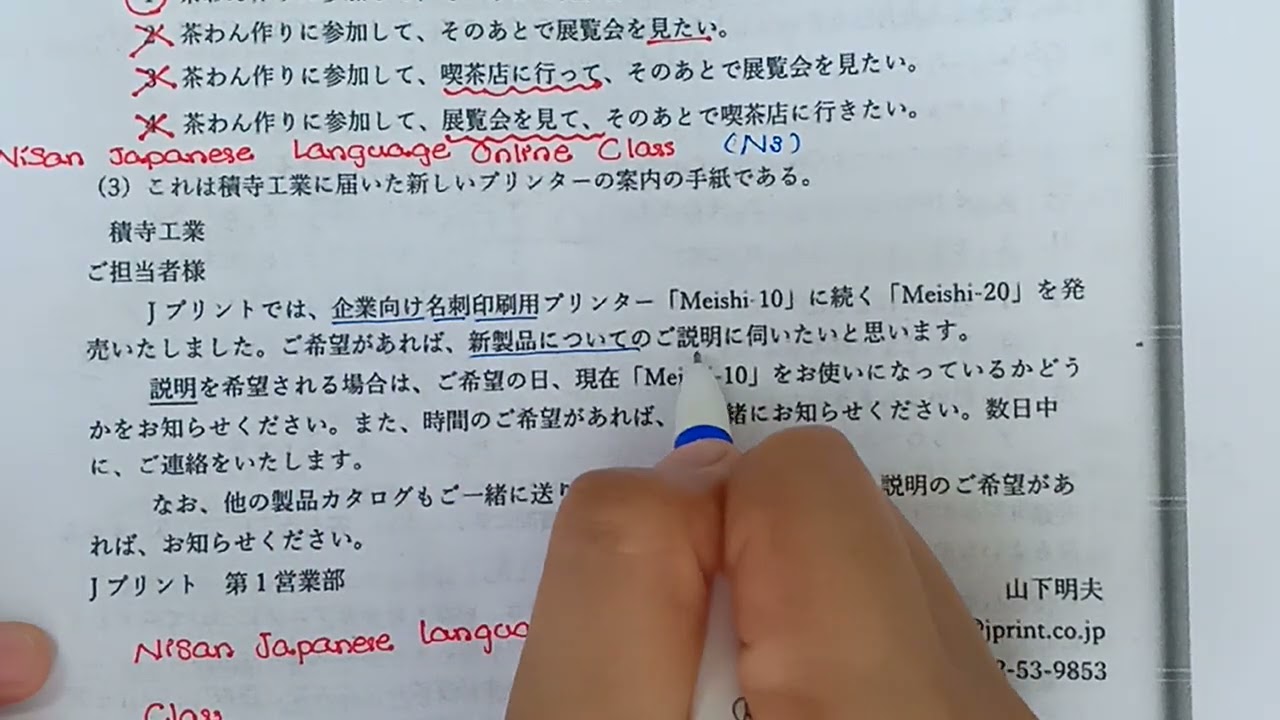 茶わん作りに参加して、そのあとで展覧会を見たい。
3 茶わん作りに参加して、喫茶店に行って、そのあとで展覧会を見たい。
4 茶わん作りに参加して、展覧会を見て、そのあとで喫茶店に行きたい。
Nisan Japanese Language Online Class (N3)
(3)これは積寺工業に届いた新しいプリンターの案内の手紙である。
積寺工業
ご担当者様
Jプリントでは、企業向け名刺印刷用プリンター「Meishi-10」に続く「Meishi-20」を発
売いたしました。ご希望があれば、新製品についてのご説明に伺いたいと思います。
説明を希望される場合は、ご希望の日、現在「Mei -10」をお使いになっているかどう
かをお知らせください。また、時間のご希望があれば、 緒にお知らせください。数日中
に、ご連絡をいたします。
なお、他の製品カタログもご一緒に送り 説明のご希望があ
れば、お知らせください。
Jプリント 第1営業部
山下明夫
Nisan Japanese
jprint.co.jp
-53-9853
Class